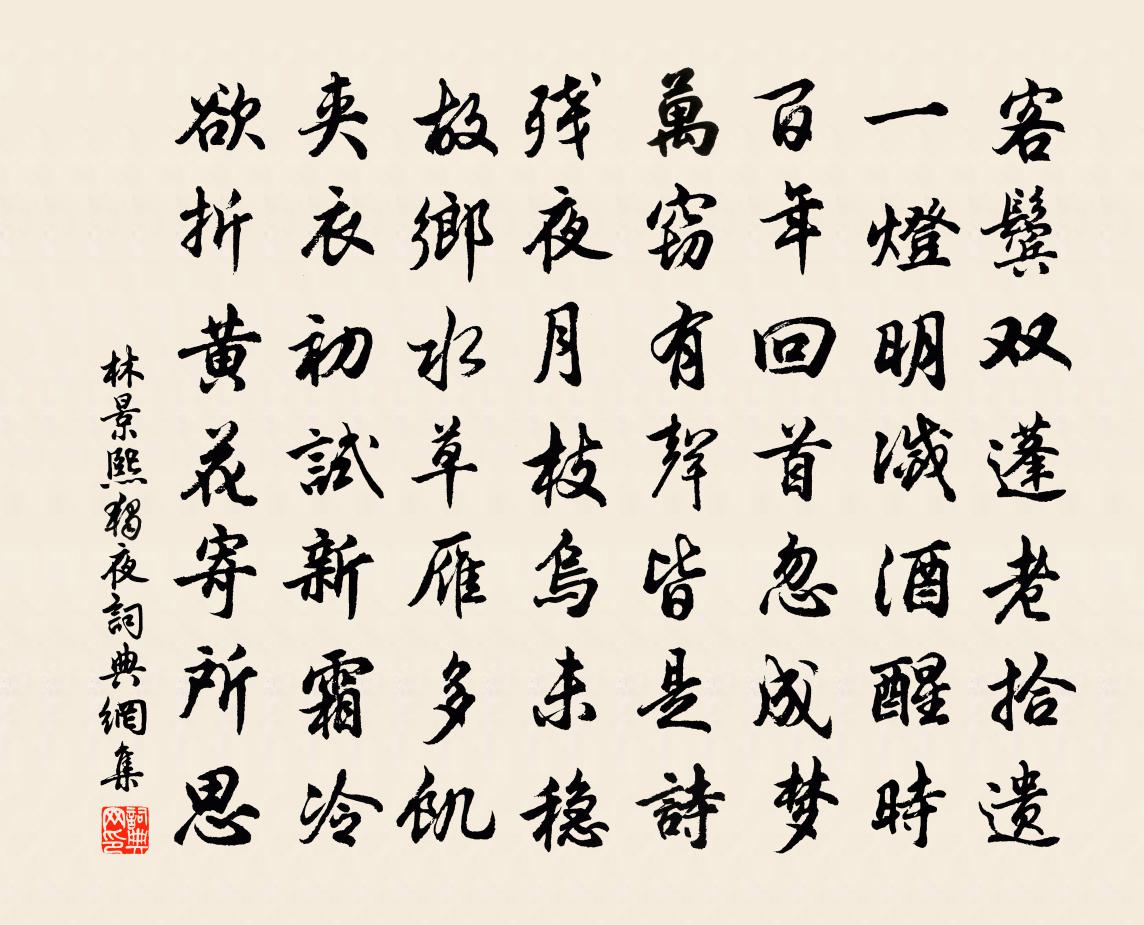 客鬓双蓬老拾遗
一燈明滅酒醒時
百年回首忽成梦
萬窍有聲皆是詩
残夜月枝烏未稳
故鄉水草雁多飢
夹衣初試新霜冷
欲折黄花寄所思
林景熙獨夜詞典網集
詞典网印